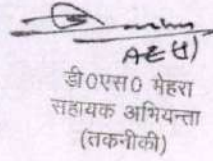 AE(I)
डी०एस० मेहरा
सहायक अभियन्ता
(तकनीकी)